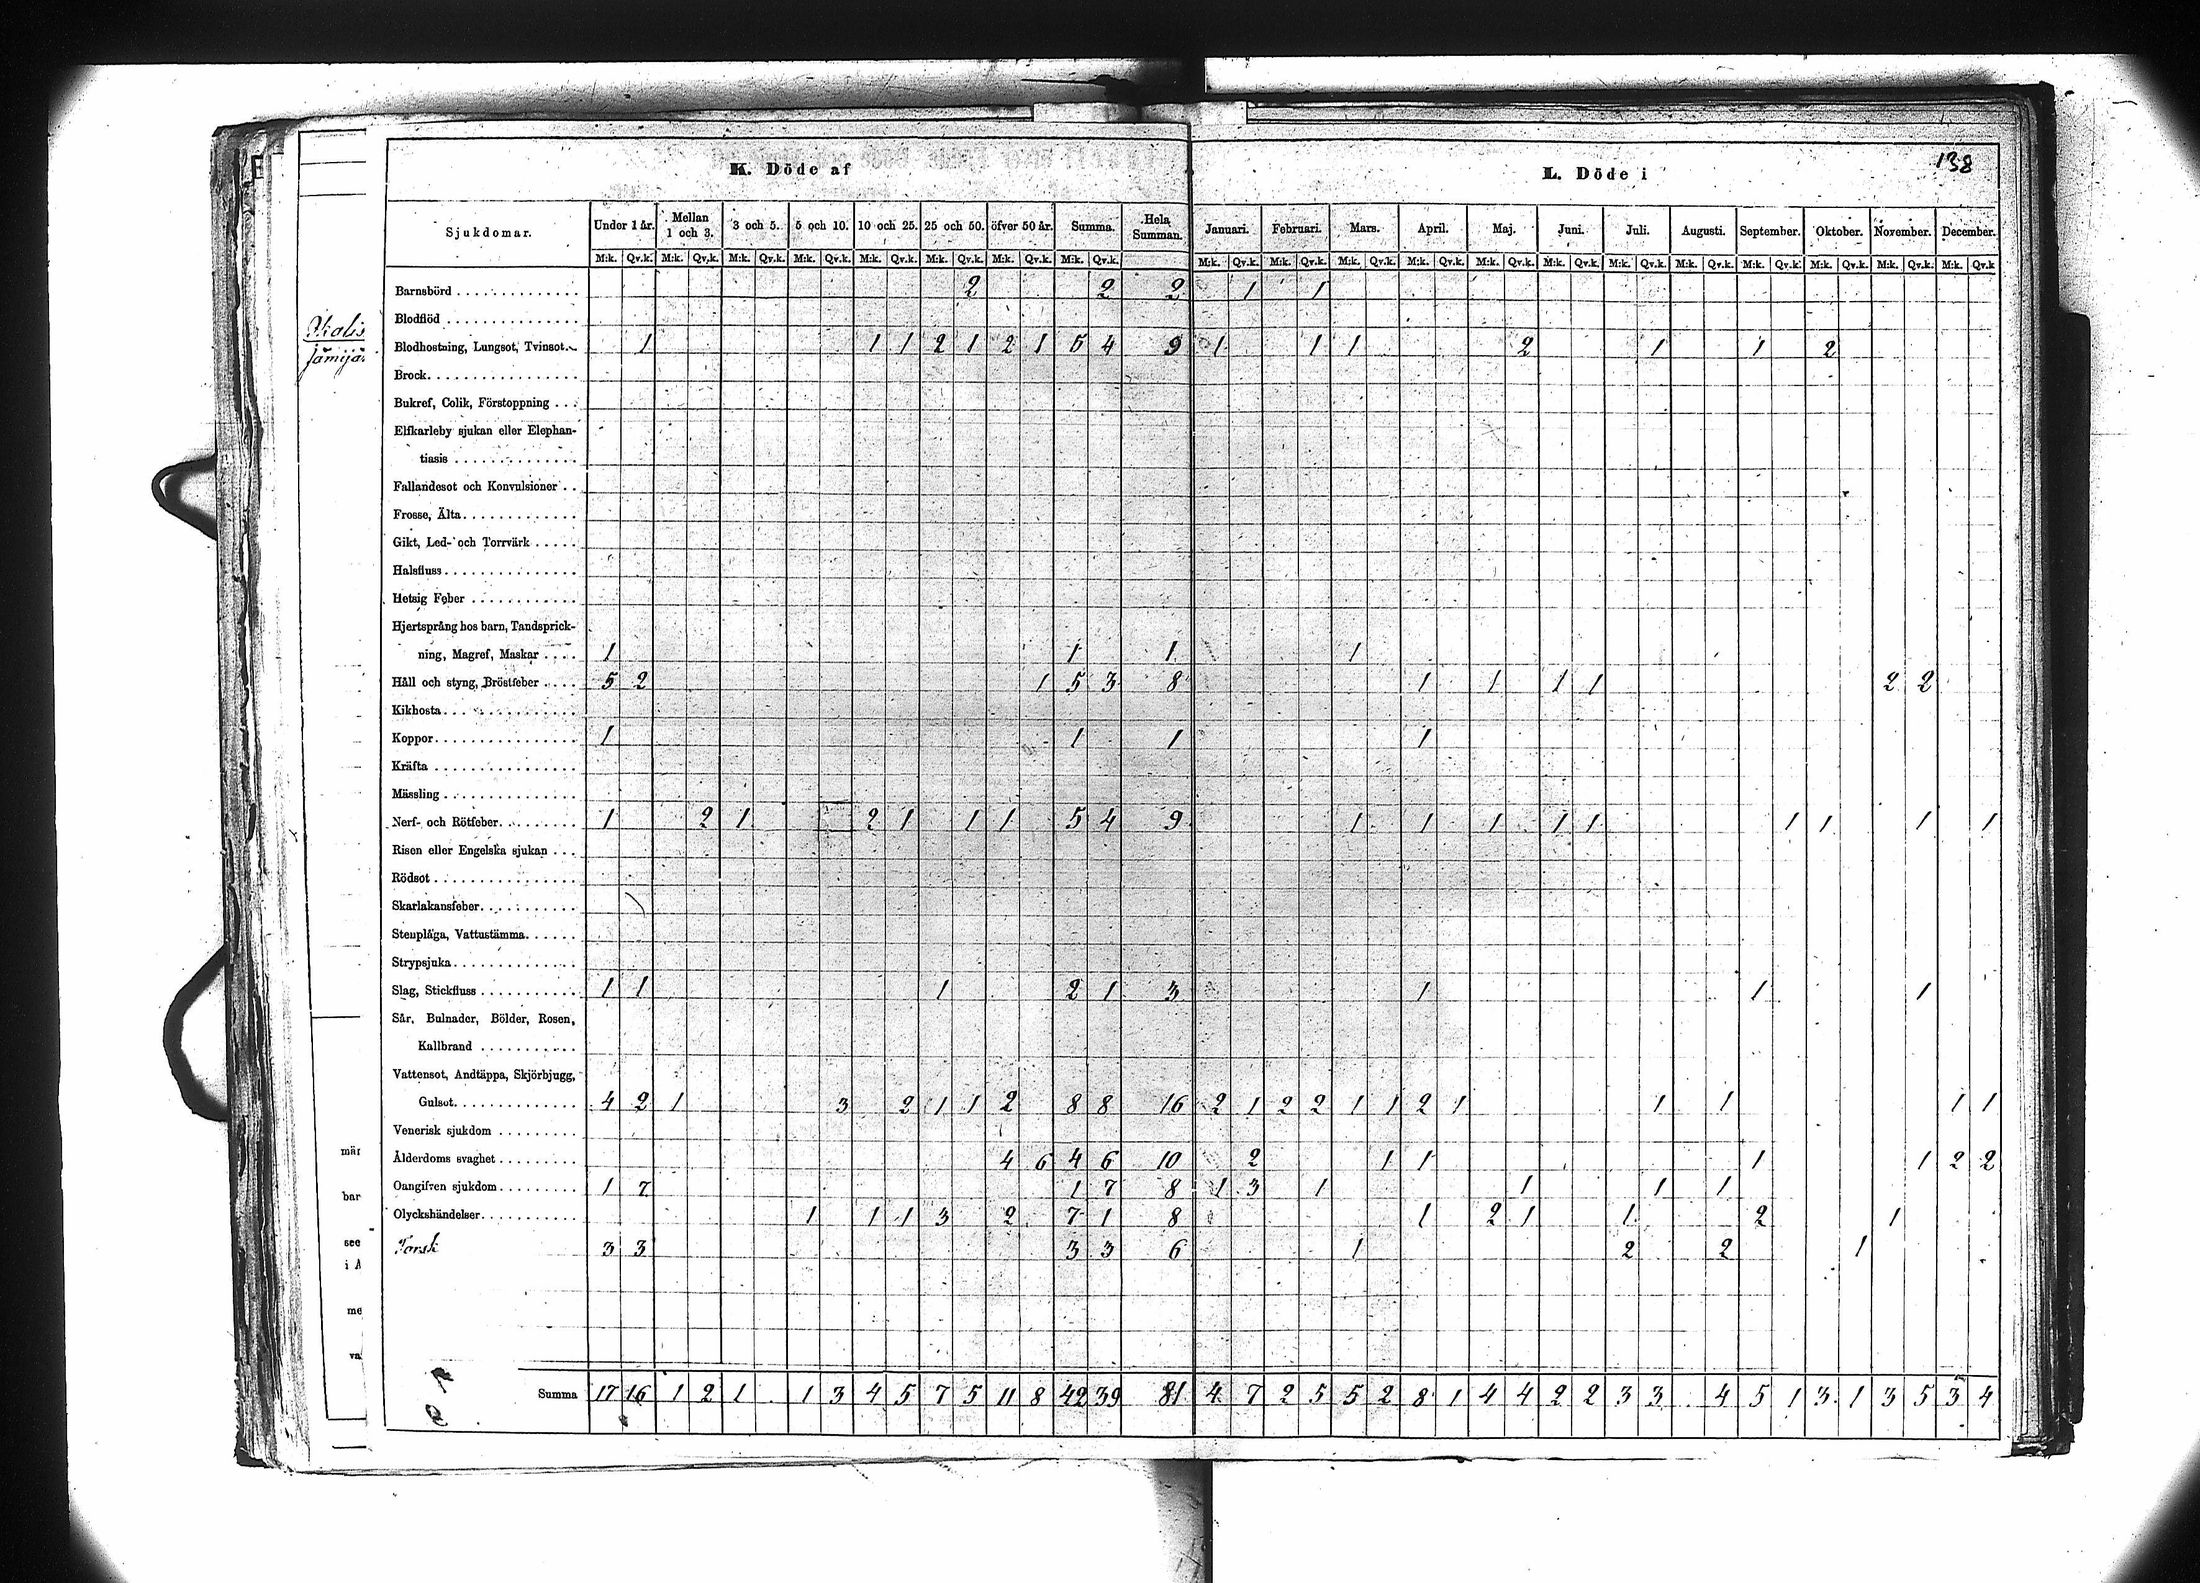 138
K. Döde af
L. Döde i
Sjukdomar. Under 1 år. Mellan 1 och 3. 3 och 5. 5 och 10. 10 och 25. 25 och 50. öfver 50 år. Summa. Hela Summan. Januari. Februari. Mars. April. Maj. Juni. Juli. Augusti. September. Oktober. November. December.
M:k. Qv.k. M:k. Qv.k. M:k. Qv.k. M:k. Qv.k. M:k. Qv.k. M:k. Qv.k. M:k. Qv.k. M:k. Qv.k. M:k. Qv.k. M:k. Qv.k. M:k. Qv.k. M:k. Qv.k. M:k. Qv.k. M:k. Qv.k. M:k. Qv.k. M:k. Qv.k. M:k. Qv.k. M:k. Qv.k. M:k. Qv.k. M:k. Qv.k
Barnsbörd 2 2 2 1 1
Blodflöd
Blodhostning, Lungsot, Tvinsot 1 1 1 2 1 2 1 5 4 9 1 1 1 2 1 1 2
Brock
Bukref, Colik, Förstoppning
Elfkarleby sjukan eller Elephan-
tiasis
Fallandesot och Konvulsioner
Frosse, Älta
Gikt, Led- och Torrvärk
Halsfluss
Hetsig Feber
Hjertsprång hos barn, Tandsprick-
ning, Magref, Maskar 1 1 1 1
Håll och styng, Bröstfeber 5 2 1 5 3 8 1 1 1 1 2 2
Kikhosta
Koppor 1 1 1 1
Kräfta
Mässling
Nerf- och Rötfeber 1 2 1 2 1 1 1 5 4 9 1 1 1 1 1 1 1 1 1
Risen eller Engelska sjukan
Rödsot
Skarlakansfeber
Stenplåga, Vattustämma
Strypsjuka
Slag, Stickfluss 1 1 1 2 1 3 1 1 1
Sår, Bulnader, Bölder, Rosen,
Kallbrand
Vattensot, Andtäppa, Skjörbjugg,
Gulsot 4 2 1 3 2 1 1 2 8 8 16 2 1 2 2 1 1 2 1 1 1 1 1
Venerisk sjukdom
Ålderdoms svaghet 4 6 4 6 10 2 1 1 1 1 2 2
Oangifven sjukdom 1 7 1 7 8 1 3 1 1 1 1
Olyckshändelser 1 1 1 3 2 7 1 8 1 2 1 1 2 1
Torsk 3 3 3 3 6 1 2 2 1
Summa 17 16 1 2 1 1 3 4 5 7 5 11 8 42 39 81 4 7 2 5 5 2 8 1 4 4 2 2 3 3 4 5 1 3 1 3 5 3 4
mär
bar
see
i A
me
va